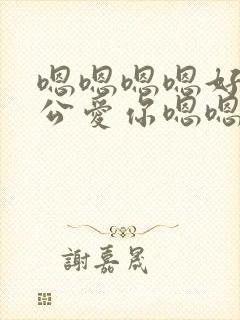 嗯嗯嗯嗯好
公爱你嗯嗯
謝嘉晟